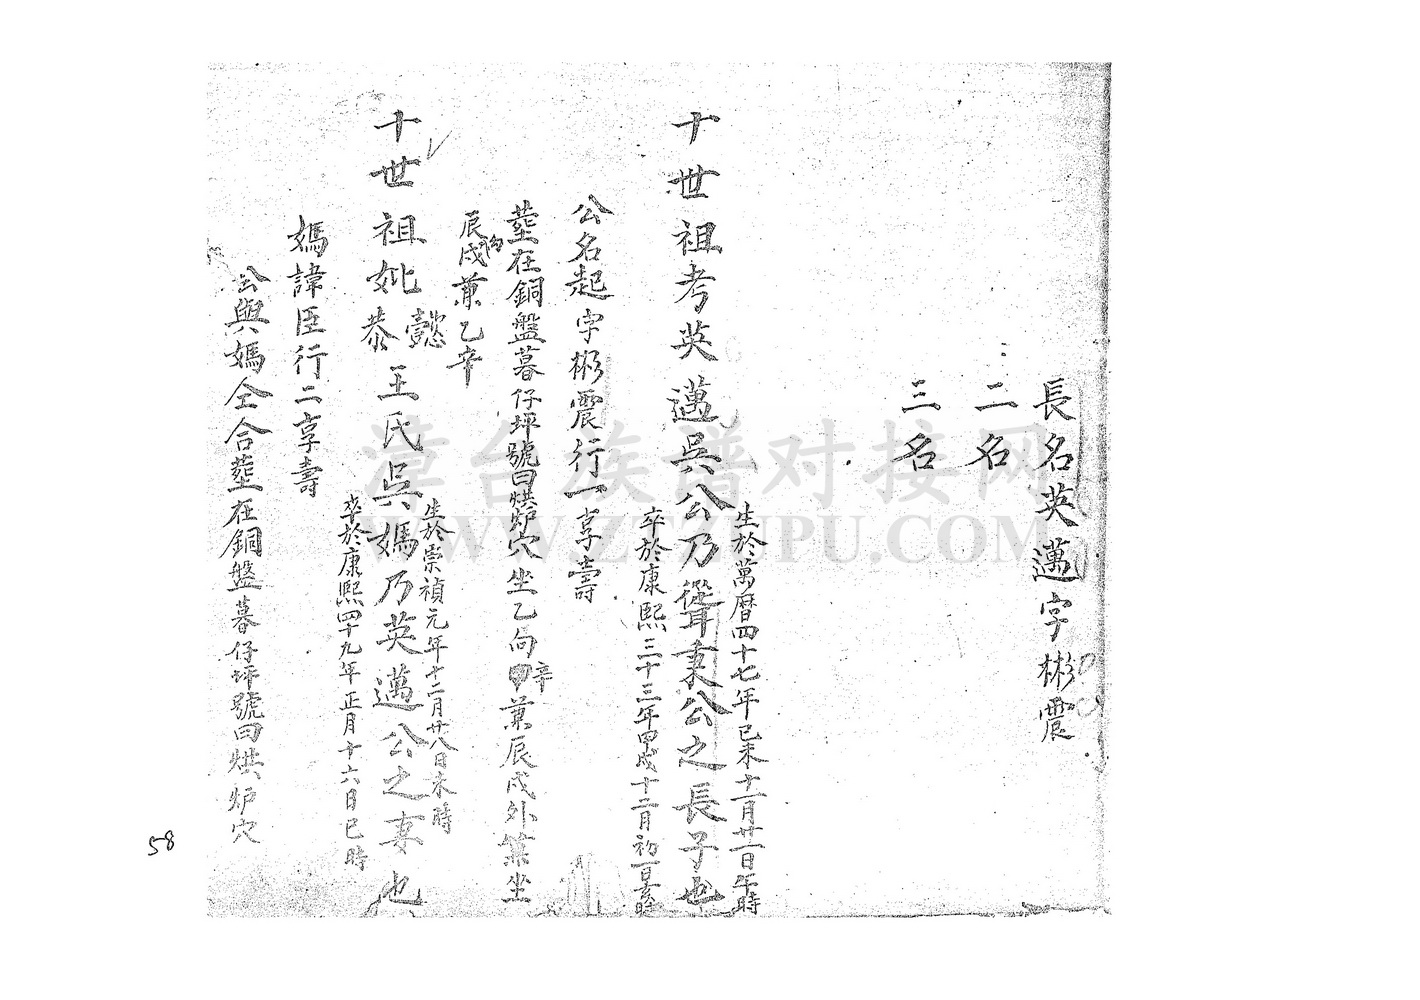 長名英邁字彬震
二名
三名
十世祖考英邁吳公乃聳秉公之長子也
生於萬曆四十七年己未十一月廿一日午時
卒於康熙三十三年甲戌十二月初一日
公名起字彬震行一享壽
塟在銅盤暮仔坪號曰烘炉穴坐乙向辛兼辰戌外盤坐
辰向戌兼乙辛
十世祖妣懿恭王氏吳媽乃英邁公之妻也
生於崇禎元年十二月廿八日未時
卒於康熙四十九年正月十六日巳時
媽諱臣行二享壽
公與媽仝合塟在銅盤暮仔坪號曰烘炉穴
58
漳台族谱对接网
WWW.ZTZUPU.COM